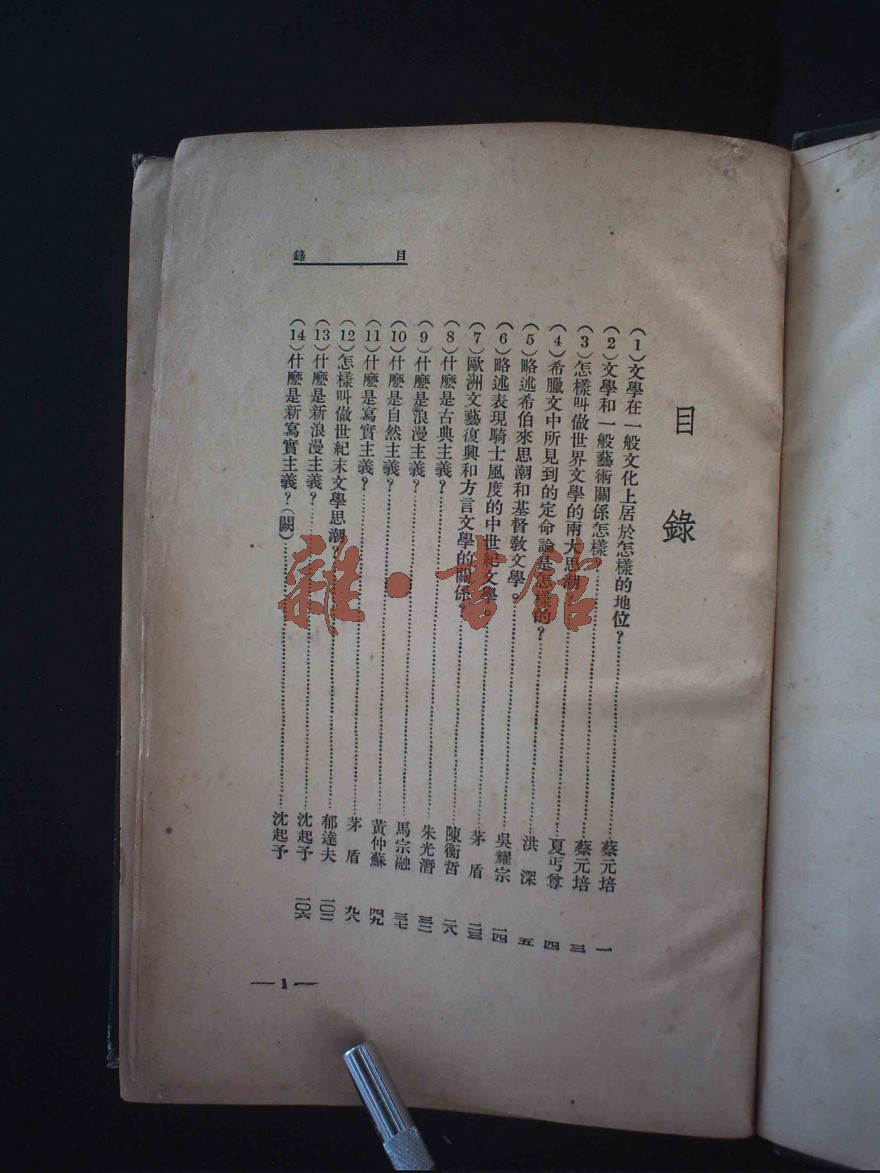 目錄
目錄
(1)文學在一般文化上居於怎樣的地位？……蔡元培 一
(2)文學和一般藝術關係怎樣……蔡元培 三
(3)怎樣叫做世界文學的兩大思潮……夏丏尊 四
(4)希臘文中所見到的定命論是怎樣的？……洪深 五
(5)略述希伯來思潮和基督教文學？……吳耀宗 一四
(6)略述表現騎士風度的中世紀文學？……茅盾 二三
(7)歐洲文藝復興和方言文學的關係？……陳衡哲 二八
(8)什麼是古典主義？……朱光潛 三二
(9)什麼是浪漫主義？……馬宗融 三七
(10)什麼是自然主義？……黃仲蘇 四九
(11)什麼是寫實主義？……茅盾 九八
(12)怎樣叫做世紀末文學思潮？……郁達夫 一〇二
(13)什麼是新浪漫主義？……沈起予 一〇六
(14)什麼是新寫實主義？(闕)……沈起予
— 1 —
雜·書館